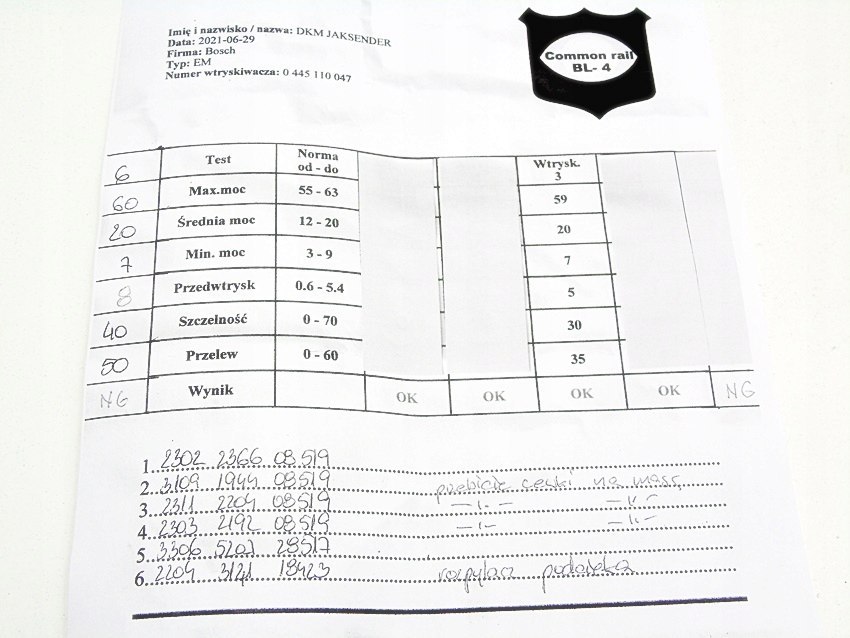 Imię i nazwisko / nazwa: DKM JAKSENDER
Data: 2021-06-29
Firma: Bosch
Typ: EM
Numer wtryskiwacza: 0 445 110 047
Common rail
BL- 4
6 Test Norma od - do Wtrysk. 3
60 Max.moc 55 - 63 59
20 Średnia moc 12 - 20 20
7 Min. moc 3 - 9 7
8 Przedwtrysk 0.6 - 5.4 5
40 Szczelność 0 - 70 30
50 Przelew 0 - 60 35
NG Wynik OK OK OK OK NG
1. 2302 2366 08519
2. 3109 1944 08519 przebicie cewki na masę
3. 2311 2204 08519 -11- -11-
4. 2303 2192 08519 -11- -11-
5. 3306 5207 28517
6. 2204 3141 18423 rozpylacz podcieka